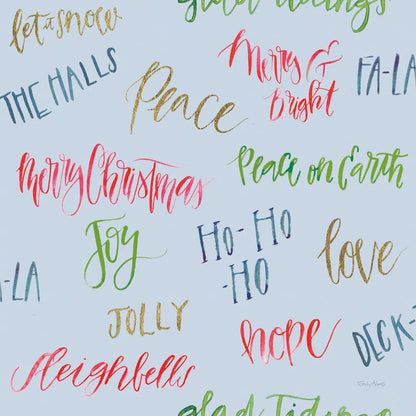 glad tidings
let it snow
Merry &
bright
FA-LA
THE HALLS
Peace
Merry Christmas
Peace on Earth
Joy
HO-HO
-HO
love
-LA
JOLLY
hope
DECK-
Sleighbells
glad Tidings